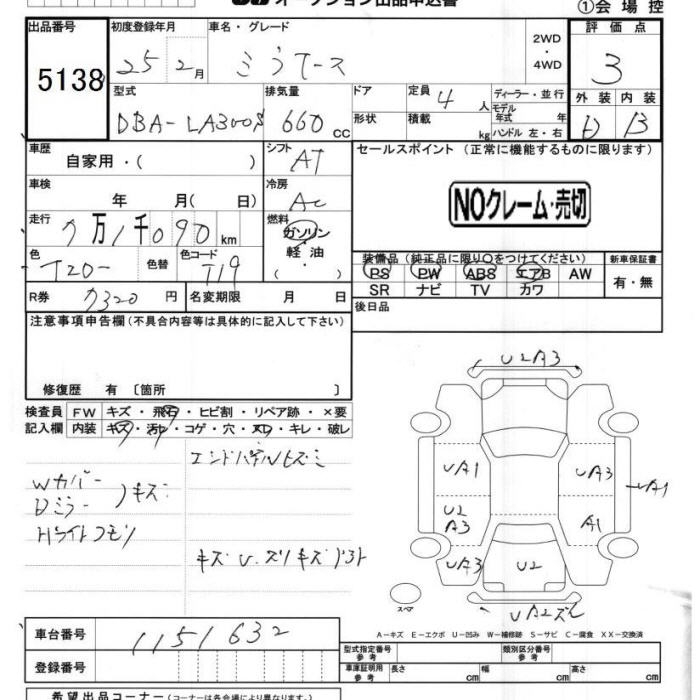 オークション出品申込書
①会場控
出品番号
5138
初度登録年月
25 2月
車名・グレード
ミライース
2WD
・
4WD
評価点
3
外装 内装
D B
型式
DBA-LA300S
排気量
660 cc
ドア
形状
定員
4 人
積載
kg
ディーラー・並行
モデル
年式 年
ハンドル 左・右
車歴
自家用・( )
シフト
AT
セールスポイント (正常に機能するものに限ります)
車検
年 月( 日)
冷房
AC
NOクレーム・売切
走行
7万1千090km
燃料
ガソリン
軽油
( )
色
イエロー
色替
色コード
T19
装備品(純正品に限り○をつけてください)
新車保証書
PS PW ABS エアB AW
SR ナビ TV カワ
有・無
R券
7320円
名変期限 月 日
後日品
注意事項申告欄(不具合内容等は具体的に記入して下さい)
修復歴 有〔箇所 〕
検査員
記入欄
FW キズ・飛石・ヒビ割・リペア跡・×要
内装 キズ・汚れ・コゲ・穴・スレ・キレ・破レ
エンドパネルヒズミ
Wカバー
Dミラー
キズ
Hライトクモリ
キズ U.ズリキズ
U2A3
UA1
UA3
UA1
U2
A3
A1
UA3
U2
UA2ズレ
スペア
A-キズ E-エクボ U-凹み W-補修跡 S-サビ C-腐食 XX-交換済
車台番号
1151632
登録番号
型式指定番号
参考
類別区分番号
参考
車庫証明用
参考
長さ cm 幅 cm 高さ cm
希望出品コーナー(コーナーは各会場により異なります。)